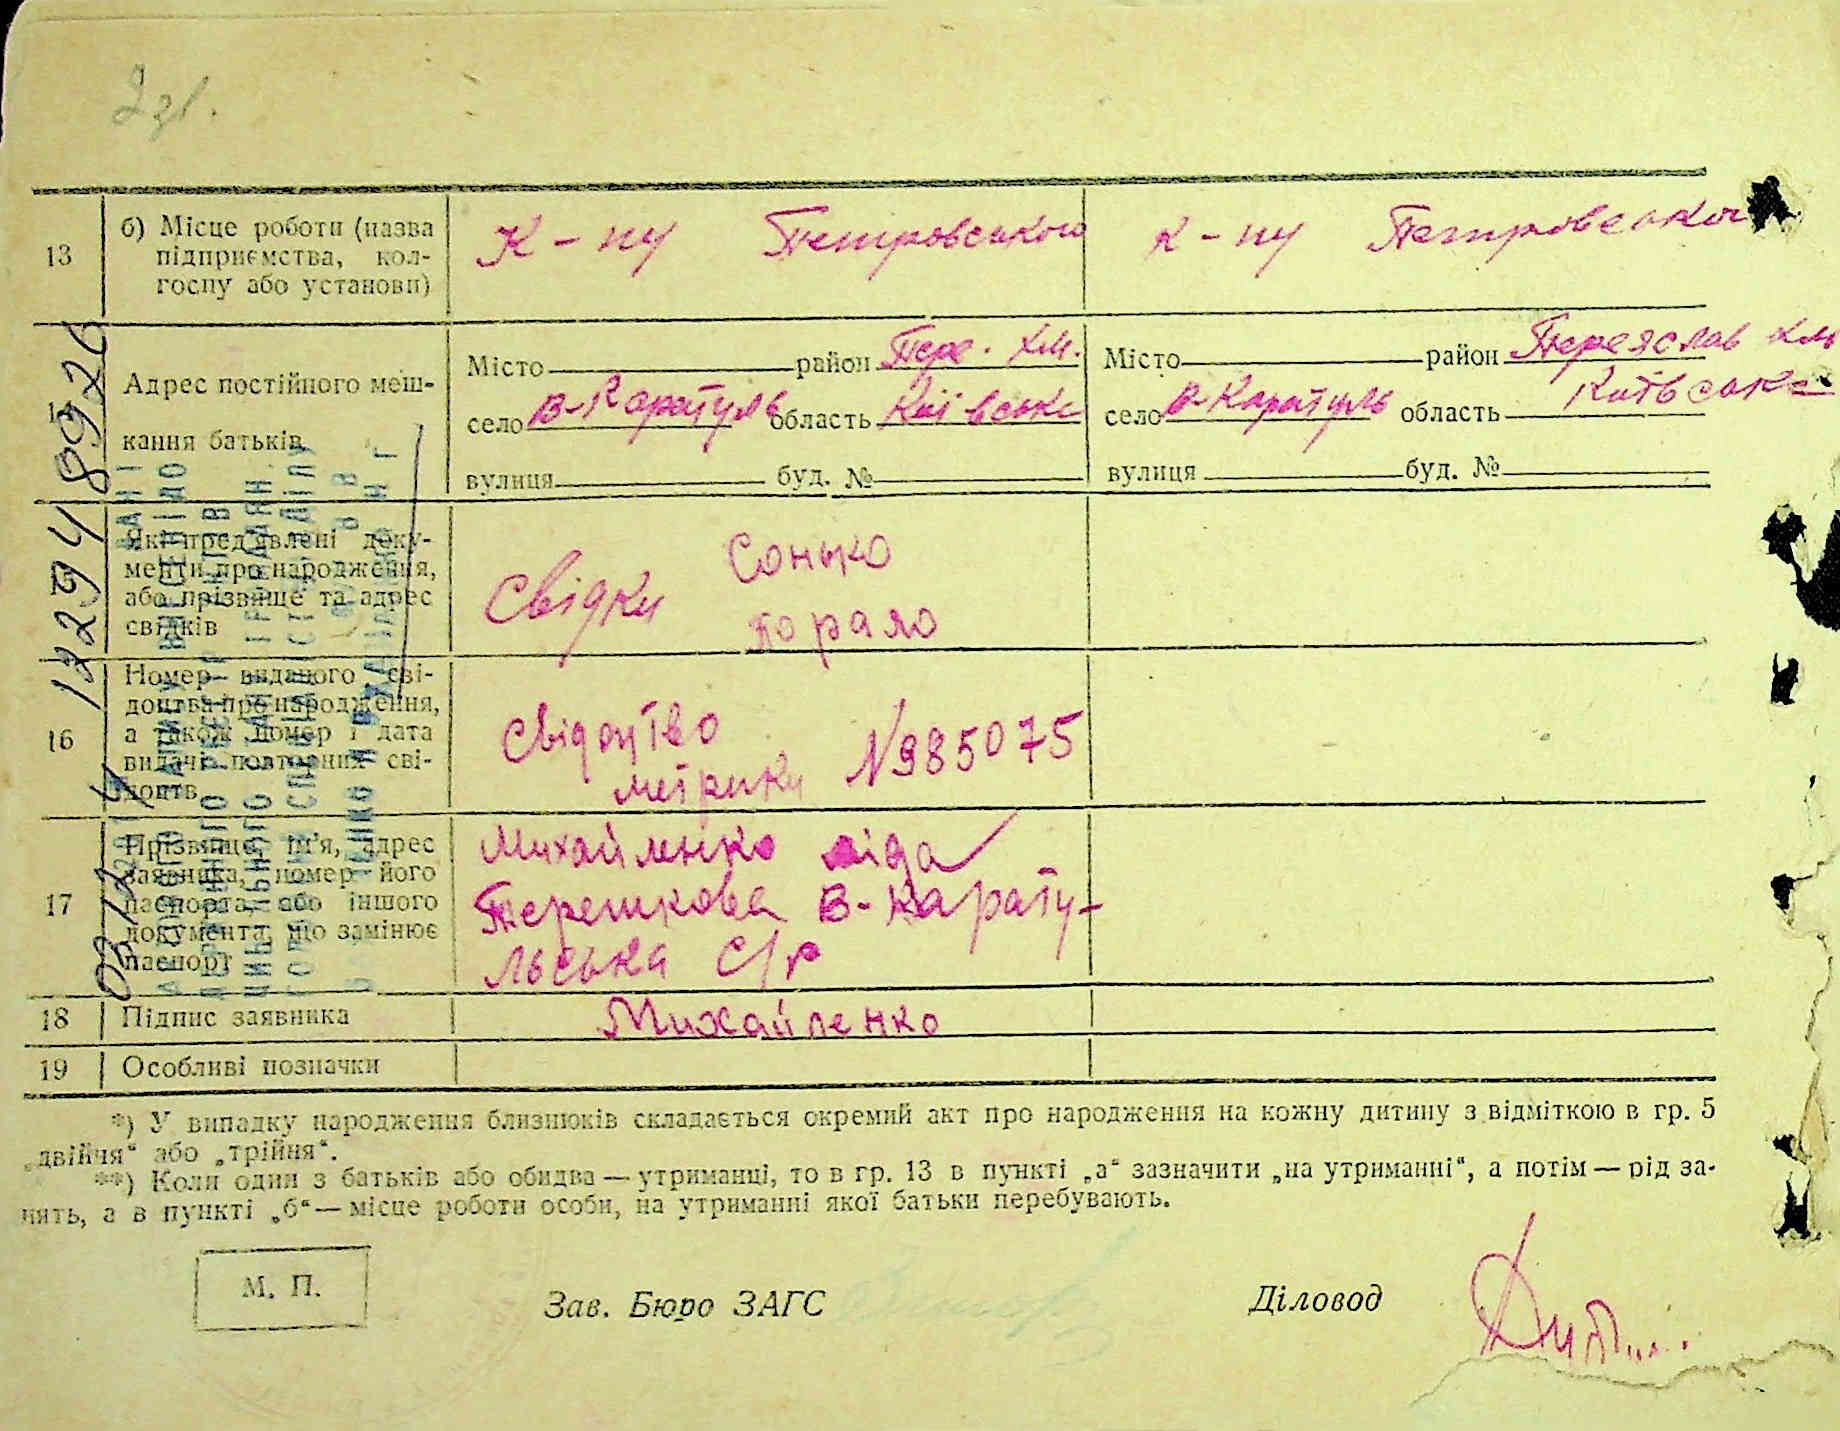 2 зв.
13
б) Місце роботи (назва
підприємства, кол-
госпу або установи)
К-пу Петровського
к-пу Петровського
Адрес постійного меш-
кання батьків
Місто район Пере. Хм.
село В-Каратуль область Київське
вулиця буд. №
Місто район Переяслав Хм
село В-Каратуль область Київське
вулиця буд. №
Які пред'явлені доку-
менти про народження,
або прізвище та адрес
свідків
Свідки Сонько
16
Номер виданого сві-
доцтва про народження,
а також номер і дата
видачі повторних сві-
доцтв
Свідоцтво
метрики №985075
17
Прізвище, ім'я, адрес
заявника, номер його
паспорта, або іншого
документа, що замінює
паспорт
Михайленко
В-Карату-
льська с/р
18
Підпис заявника
Михайленко
19
Особливі позначки
*) У випадку народження близнюків складається окремий акт про народження на кожну дитину з відміткою в гр. 5
„двійня“ або „трійня“.
**) Коли один з батьків або обидва — утриманці, то в гр. 13 в пункті „а“ зазначити „на утриманні“, а потім — рід за-
нять, а в пункті „б“ — місце роботи особи, на утриманні якої батьки перебувають.
М. П.
Зав. Бюро ЗАГС
Діловод